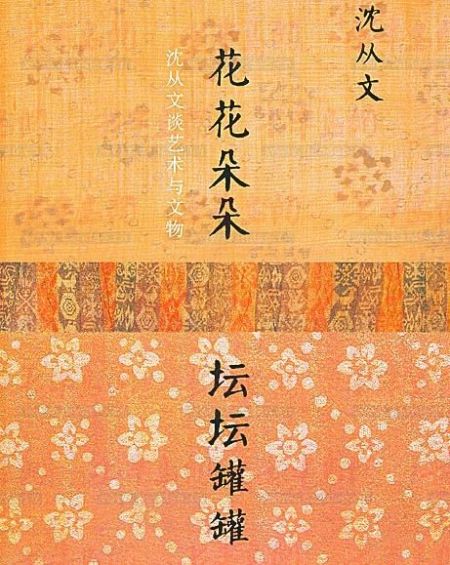 沈从文
花花朵朵
坛坛罐罐
沈从文谈艺术与文物